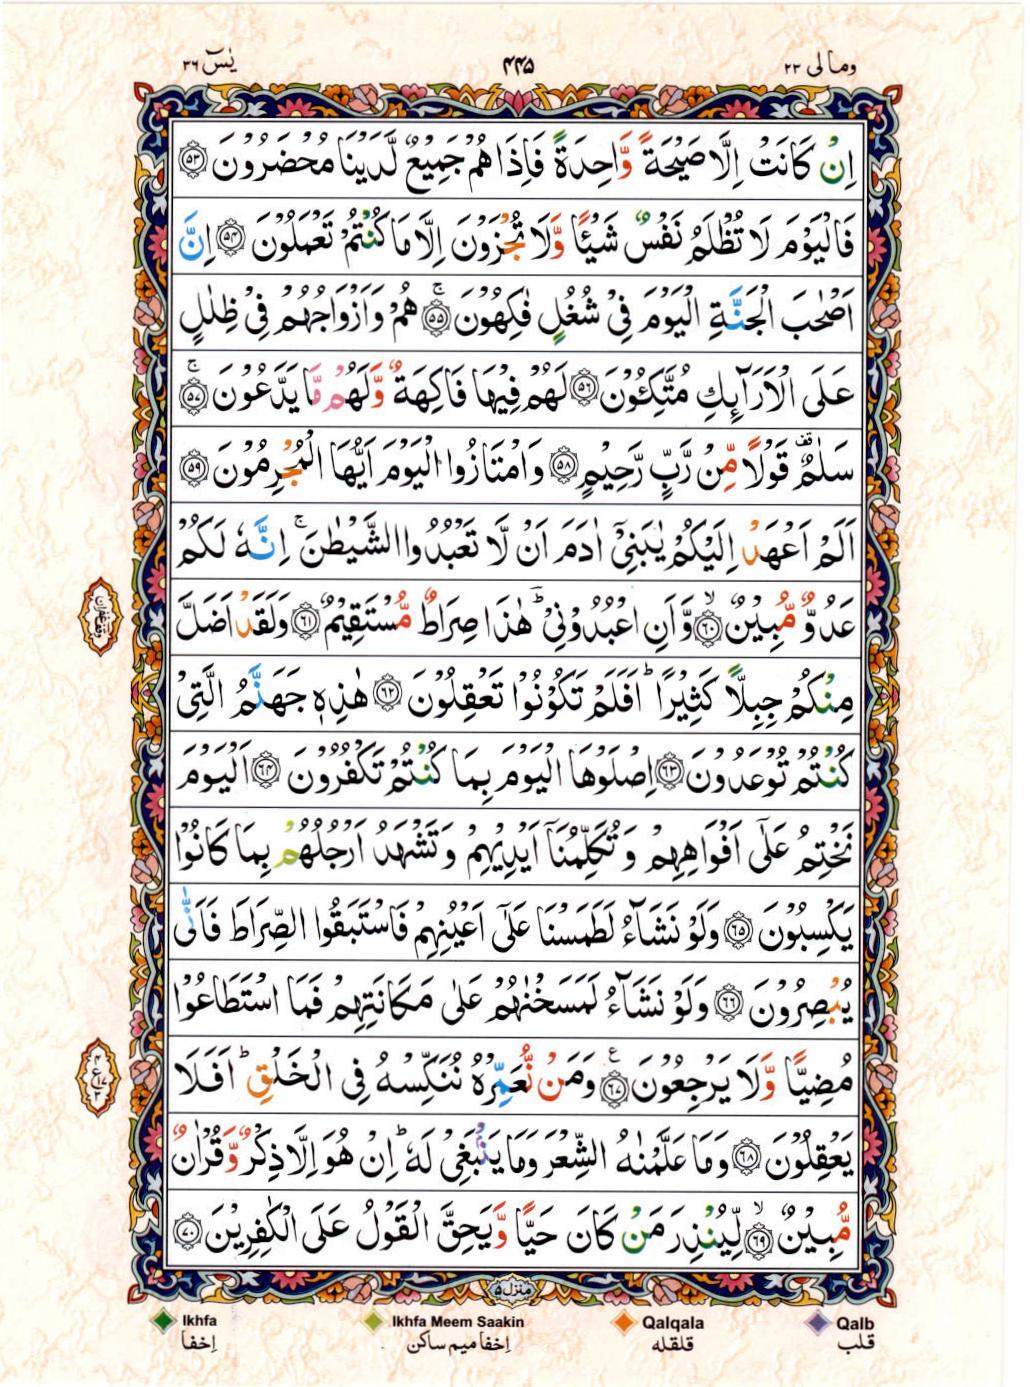 ومالی ۲۳ ۴۴۵ یٰسٓ ۳۶
اِنْ كَانَتْ اِلَّا صَيْحَةً وَّاحِدَةً فَاِذَا هُمْ جَمِيْعٌ لَّدَيْنَا مُحْضَرُوْنَ ۝۵۳
فَالْيَوْمَ لَا تُظْلَمُ نَفْسٌ شَيْـًٔا وَّلَا تُجْزَوْنَ اِلَّا مَا كُنْتُمْ تَعْمَلُوْنَ ۝۵۴ اِنَّ
اَصْحٰبَ الْجَنَّةِ الْيَوْمَ فِيْ شُغُلٍ فٰكِهُوْنَ ۚ۝۵۵ هُمْ وَاَزْوَاجُهُمْ فِيْ ظِلٰلٍ
عَلَى الْاَرَآئِكِ مُتَّكِـُٔوْنَ ۝۵۶ لَهُمْ فِيْهَا فَاكِهَةٌ وَّلَهُمْ مَّا يَدَّعُوْنَ ۚ۝۵۷
سَلٰمٌ ۣ قَوْلًا مِّنْ رَّبٍّ رَّحِيْمٍ ۝۵۸ وَامْتَازُوا الْيَوْمَ اَيُّهَا الْمُجْرِمُوْنَ ۝۵۹
اَلَمْ اَعْهَدْ اِلَيْكُمْ يٰبَنِيْٓ اٰدَمَ اَنْ لَّا تَعْبُدُوا الشَّيْطٰنَ ۚ اِنَّهٗ لَكُمْ
عَدُوٌّ مُّبِيْنٌ ۙ۝۶۰ وَّاَنِ اعْبُدُوْنِيْ ؕ هٰذَا صِرَاطٌ مُّسْتَقِيْمٌ ۝۶۱ وَلَقَدْ اَضَلَّ
مِنْكُمْ جِبِلًّا كَثِيْرًا ؕ اَفَلَمْ تَكُوْنُوْا تَعْقِلُوْنَ ۝۶۲ هٰذِهٖ جَهَنَّمُ الَّتِيْ
كُنْتُمْ تُوْعَدُوْنَ ۝۶۳ اِصْلَوْهَا الْيَوْمَ بِمَا كُنْتُمْ تَكْفُرُوْنَ ۝۶۴ اَلْيَوْمَ
نَخْتِمُ عَلٰٓى اَفْوَاهِهِمْ وَتُكَلِّمُنَآ اَيْدِيْهِمْ وَتَشْهَدُ اَرْجُلُهُمْ بِمَا كَانُوْا
يَكْسِبُوْنَ ۝۶۵ وَلَوْ نَشَآءُ لَطَمَسْنَا عَلٰٓى اَعْيُنِهِمْ فَاسْتَبَقُوا الصِّرَاطَ فَاَنّٰى
يُبْصِرُوْنَ ۝۶۶ وَلَوْ نَشَآءُ لَمَسَخْنٰهُمْ عَلٰى مَكَانَتِهِمْ فَمَا اسْتَطَاعُوْا
مُضِيًّا وَّلَا يَرْجِعُوْنَ ۝۶۷ وَمَنْ نُّعَمِّرْهُ نُنَكِّسْهُ فِي الْخَلْقِ ؕ اَفَلَا
يَعْقِلُوْنَ ۝۶۸ وَمَا عَلَّمْنٰهُ الشِّعْرَ وَمَا يَنْۢبَغِيْ لَهٗ ؕ اِنْ هُوَ اِلَّا ذِكْرٌ وَّقُرْاٰنٌ
مُّبِيْنٌ ۙ۝۶۹ لِّيُنْذِرَ مَنْ كَانَ حَيًّا وَّيَحِقَّ الْقَوْلُ عَلَى الْكٰفِرِيْنَ ۝۷۰
منزل ۵
Ikhfa Ikhfa Meem Saakin Qalqala Qalb
اِخفا اِخفا میم ساکن قلقله قلب